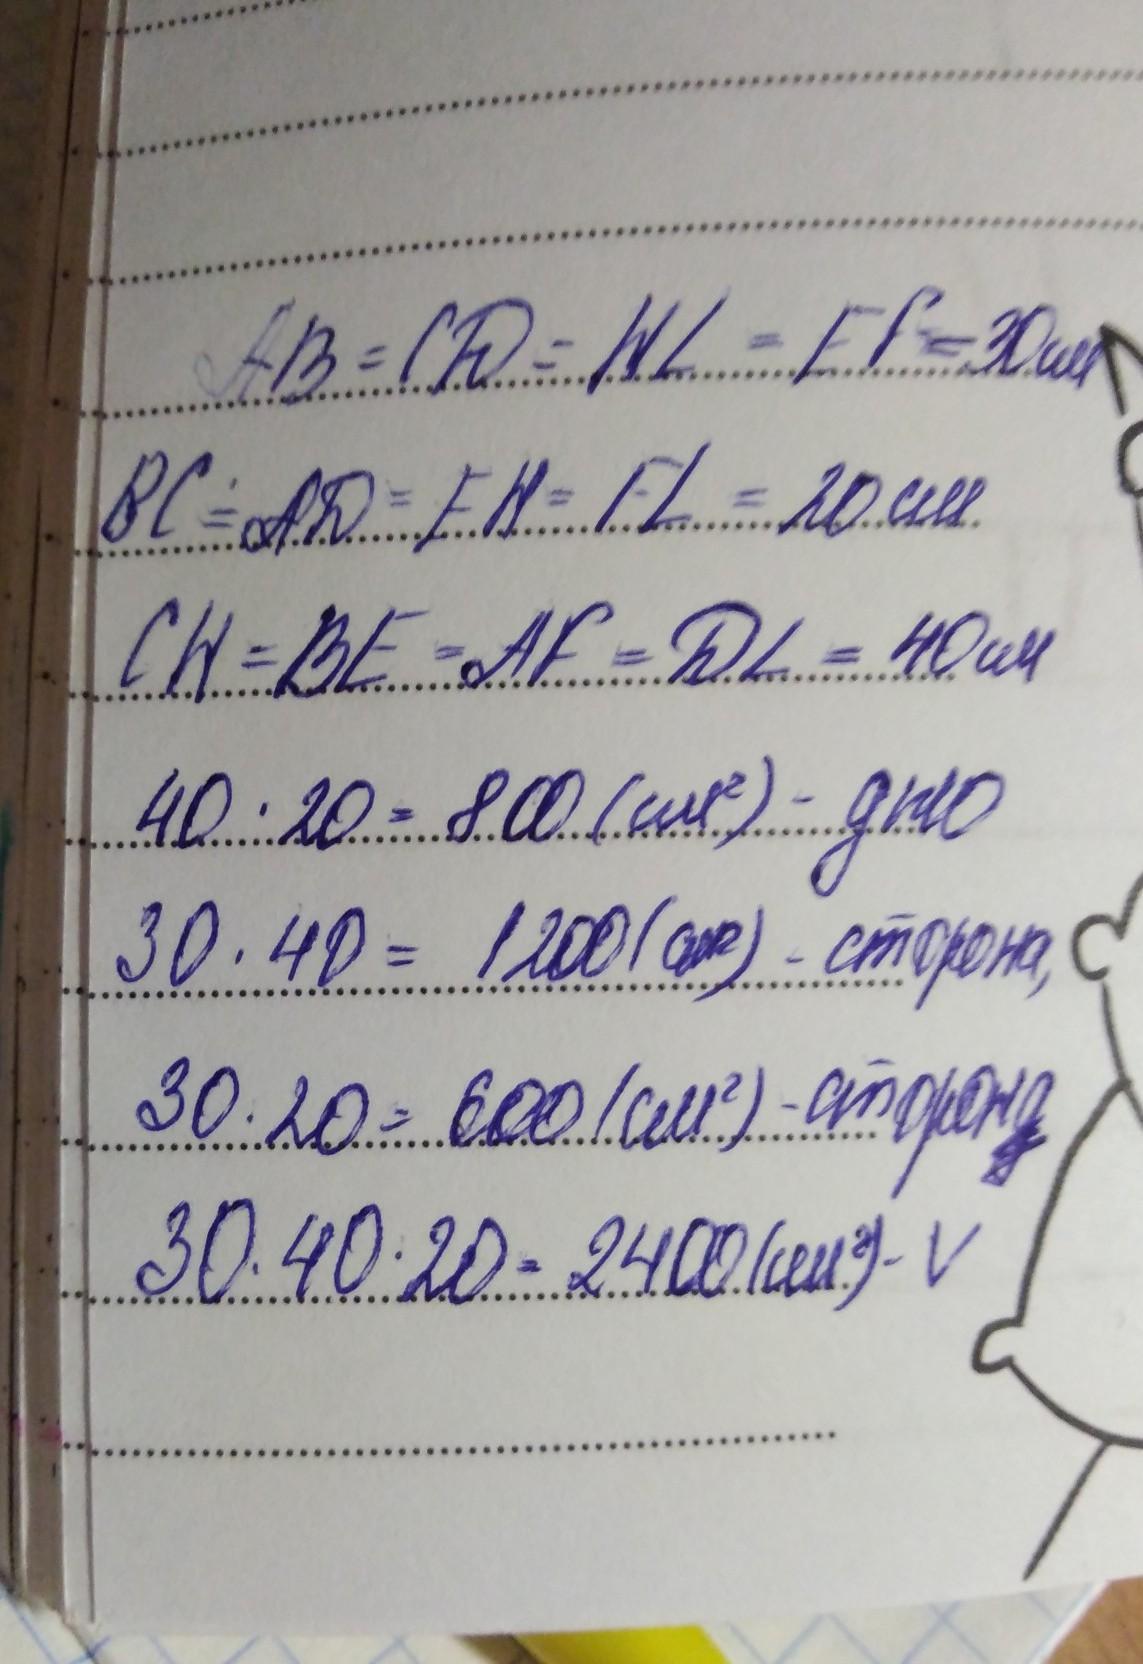 AB = CD = HL = EF = 30 см
BC = AD = EH = FL = 20 см
CH = BE = AF = DL = 40 см
40 · 20 = 800 (см²) - дно
30 · 40 = 1200 (см²) - сторона,
30 · 20 = 600 (см²) - сторона
30 · 40 · 20 = 2400 (см²) - V